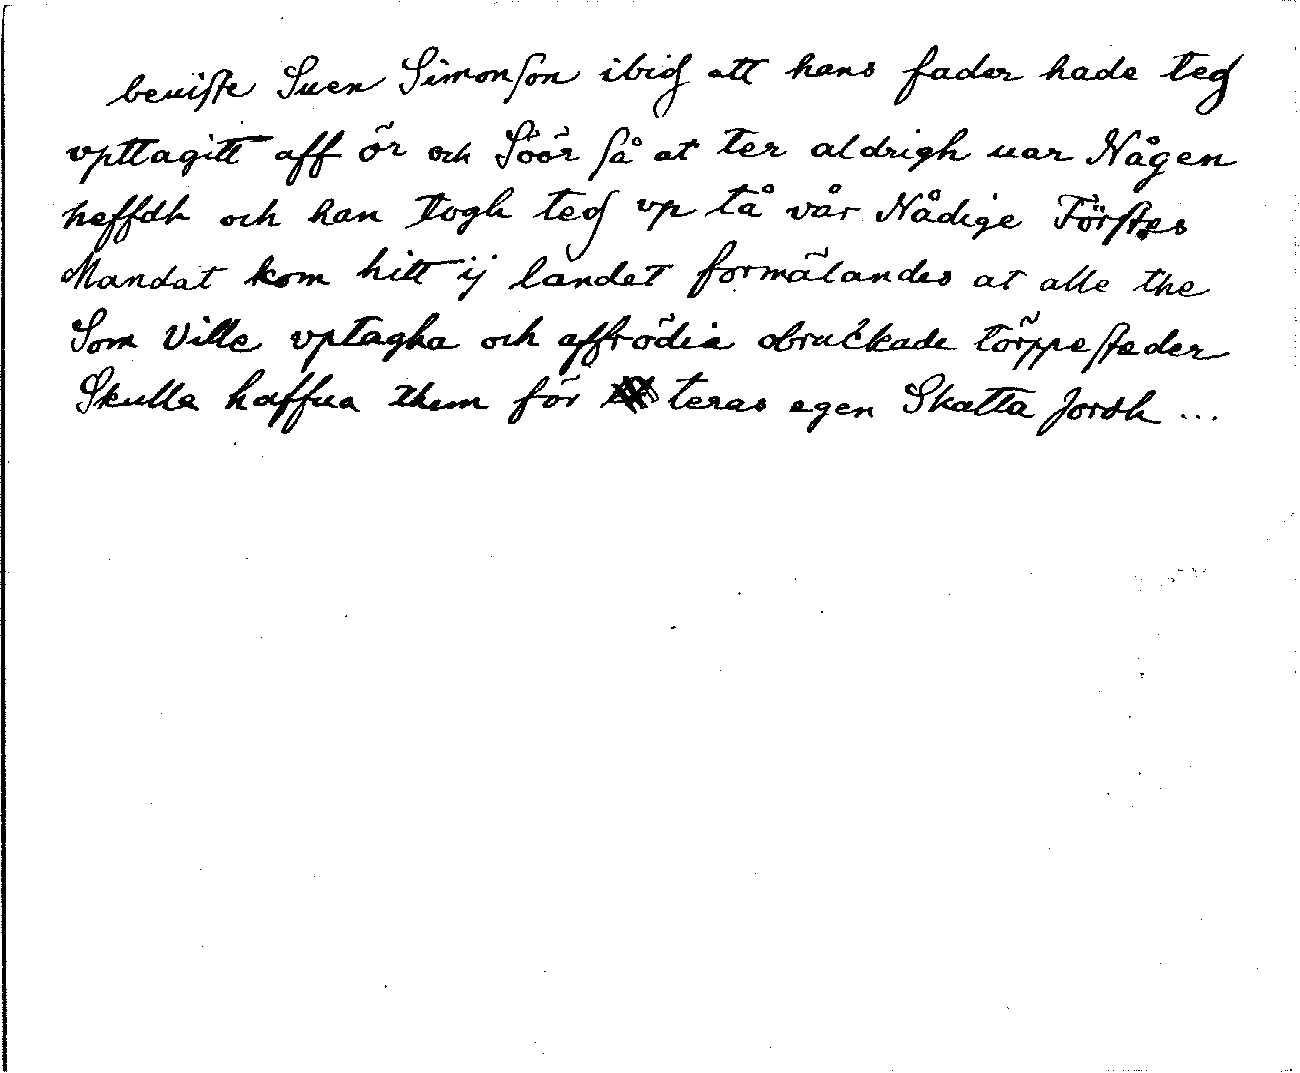 beuiste Suen Simonson ibid att hans fader hade ted
vpttagitt aff ör och Söör så at ter aldrigh uar Någen
heffdh och han togh ted vp tå vår Nådige Förstes
Mandat kom hitt ij landet formälandes at alle the
Som Ville vptagha och affrödia obruckade törppesteder
Skulle haffua them för teras egen Skatta Jordh ...